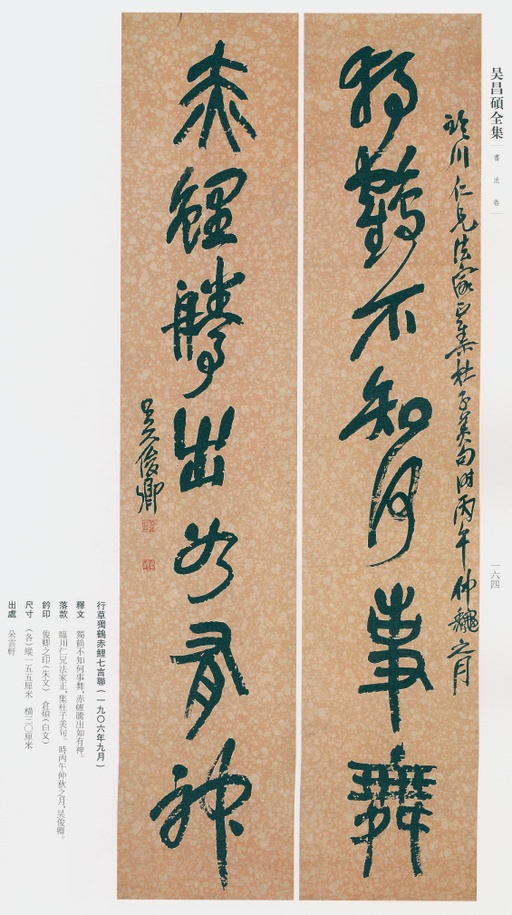 吴昌硕全集
書法卷
一六四
臨川仁兄法家正集杜子美句时丙午仲龝之月
獨鶴不知何事舞
赤鯉騰出如有神
吴俊卿
行草獨鶴赤鯉七言聯(一九〇六年九月)
釋文 獨鶴不知何事舞,赤鯉騰出如有神。
落款 臨川仁兄法家正,集杜子美句。時丙午仲秋之月,吴俊卿。
鈐印 俊卿之印(朱文) 倉碩(白文)
尺寸 (各)縱一五五厘米 橫三〇厘米
出處 朵雲軒